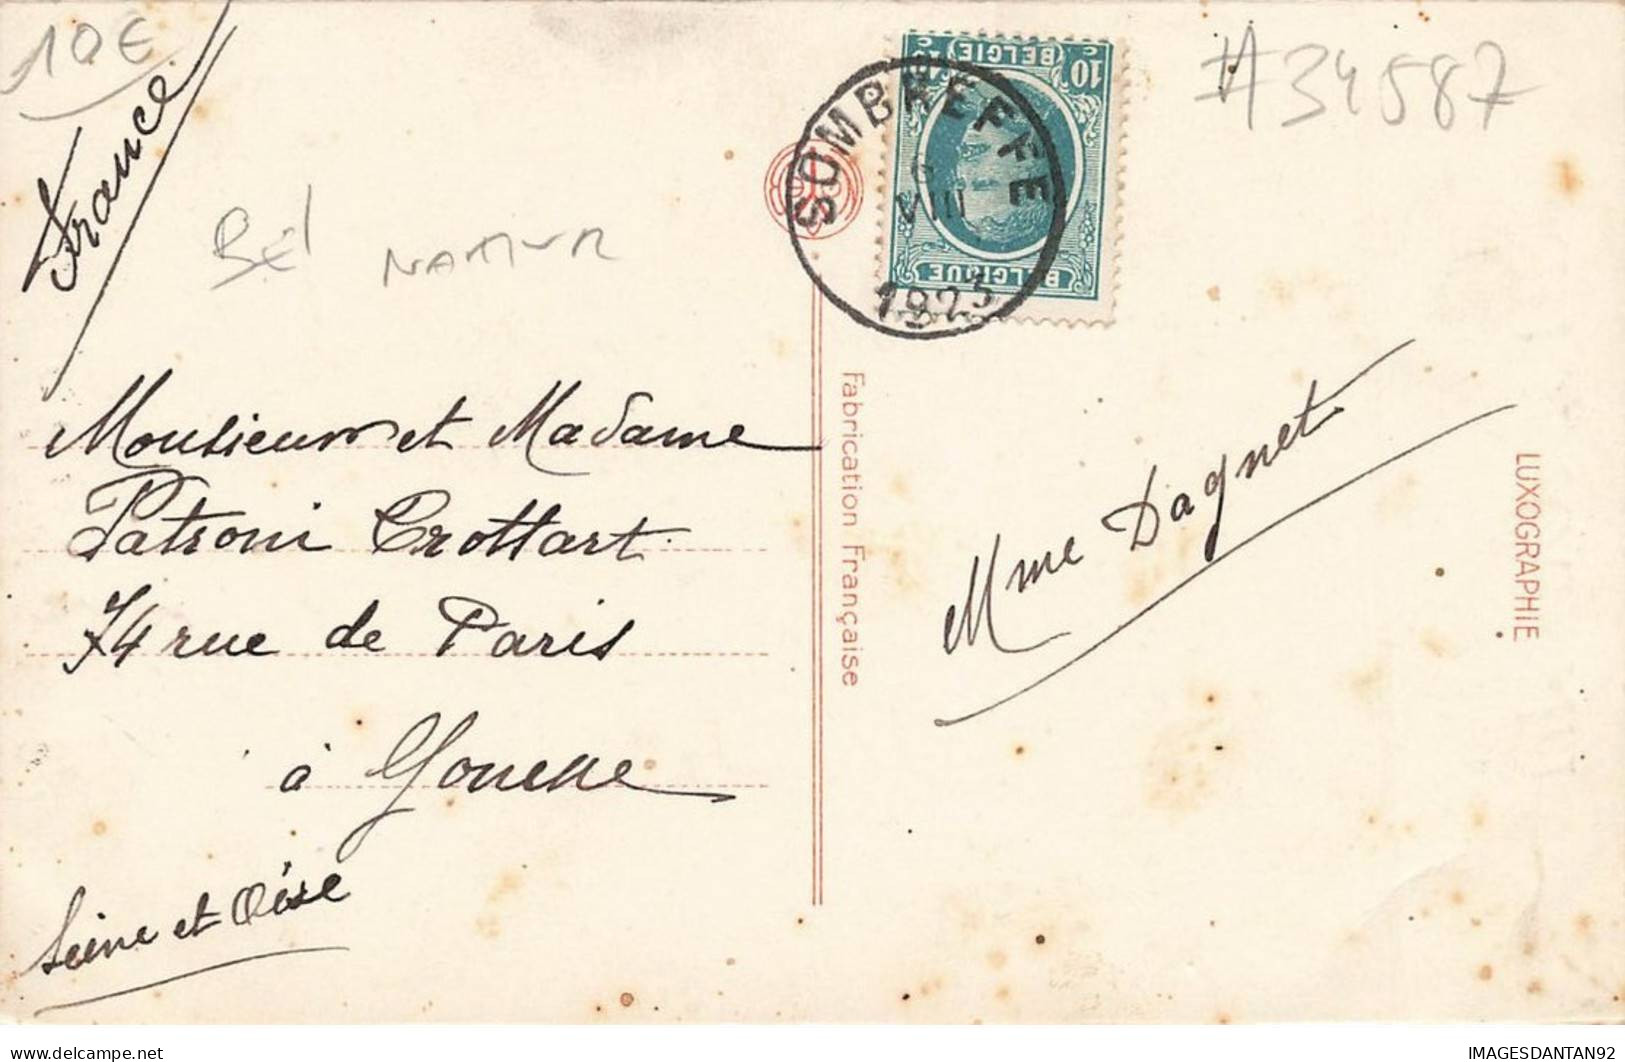 10€
France
Bel NAMUR
#34587
10 c BELGIE 10 c
BELGIQUE
SOMBREFFE
6
VIII
1923
Monsieur et Madame
Patroni Crottart
74 rue de Paris
à Gonesse
Seine et Oise
Fabrication Française
Mme Dagnet
LUXOGRAPHIE
IMAGESDANTAN92